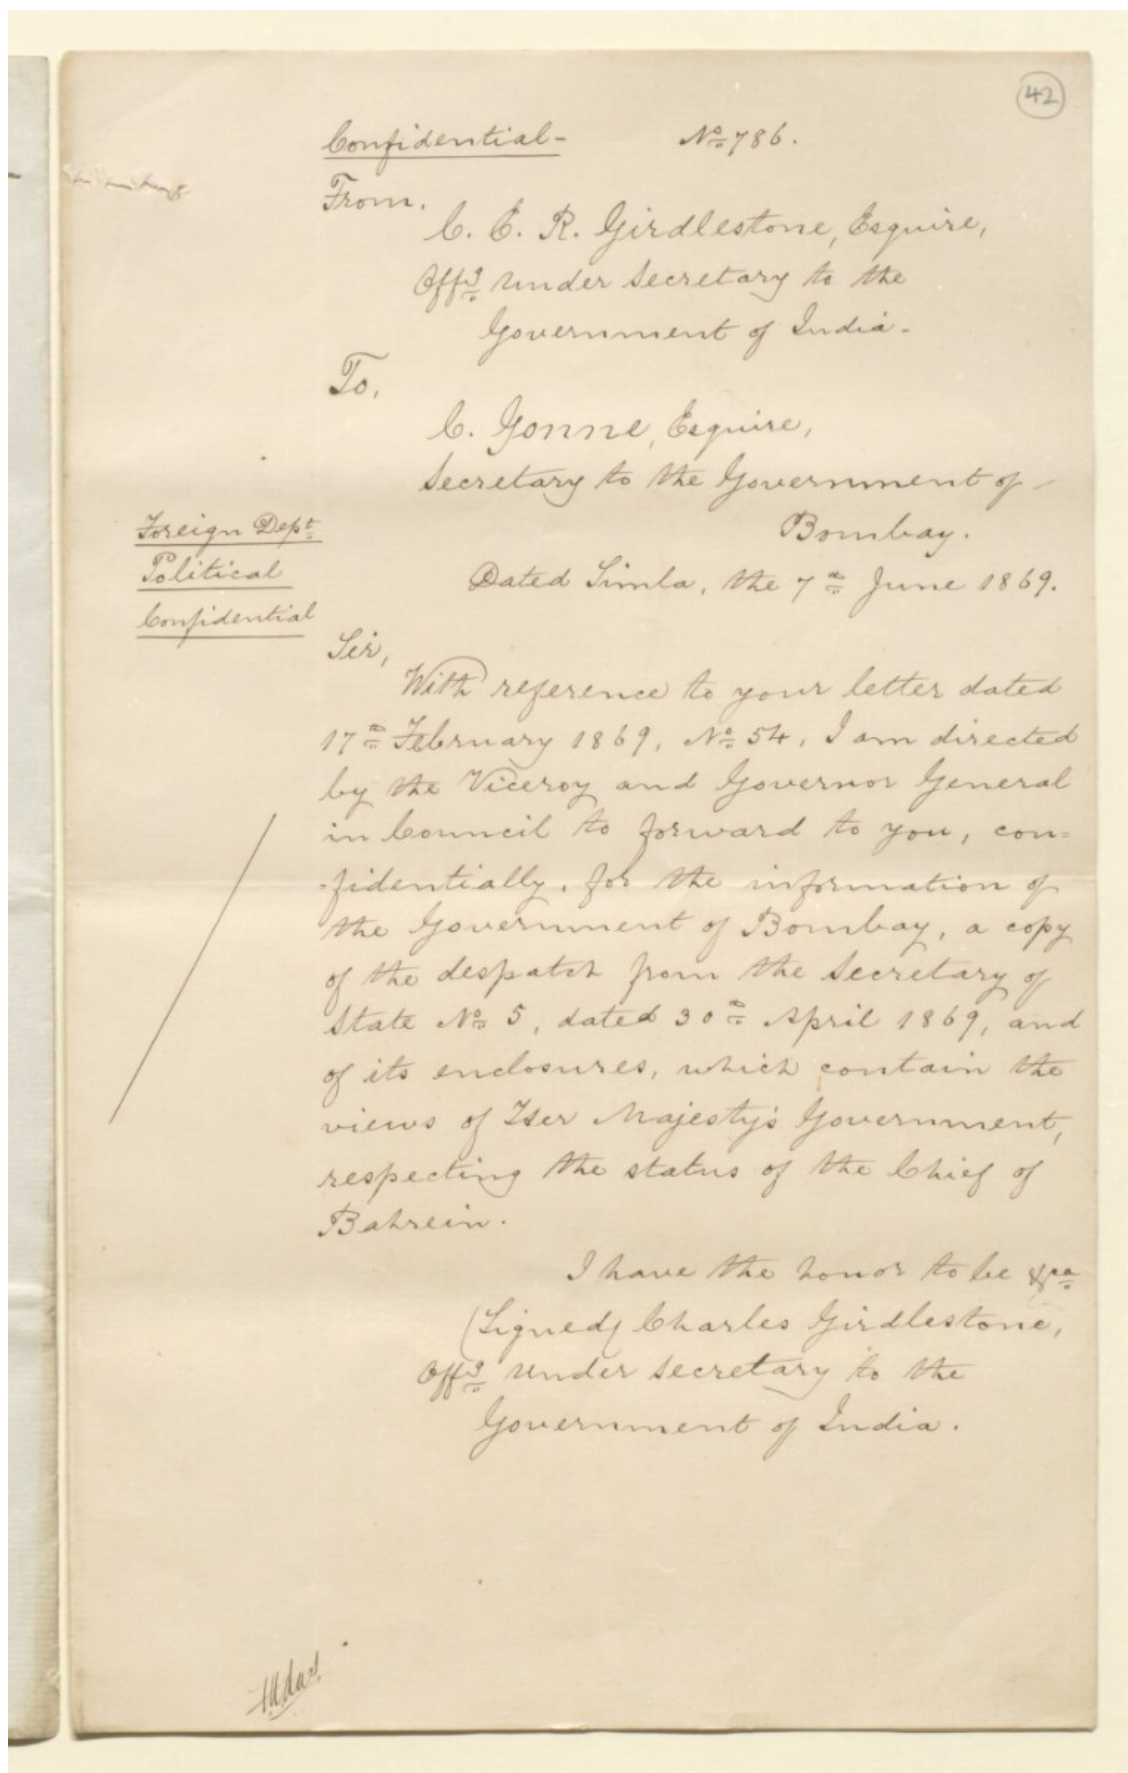 42
Confidential - No 786.
From,
C. E. R. Girdlestone, Esquire,
Offg Under Secretary to the
Government of India -
To,
C. Gonne, Esquire,
Secretary to the Government of -
Bombay.
Foreign Dept
Political
Confidential
Dated Simla, the 7th June 1869.
Sir,
With reference to your letter dated
17th February 1869, No 54, I am directed
by the Viceroy and Governor General
in Council to forward to you, con=
-fidentially, for the information of
the Government of Bombay, a copy
of the despatch from the Secretary of
State No 5, dated 30th April 1869, and
of its enclosures, which contain the
views of Her Majesty's Government,
respecting the status of the Chief of
Bahrein.
I have the honor to be &ca
(Signed) Charles Girdlestone,
Offg Under Secretary to the
Government of India.